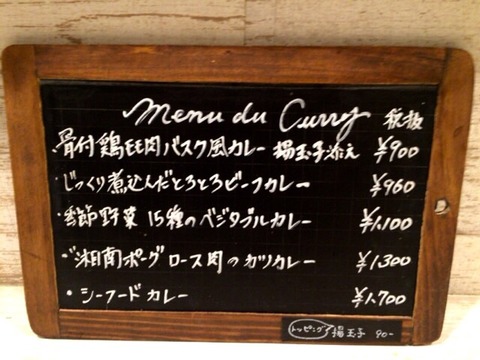 Menu du Curry 税抜
・骨付鶏モモ肉バスク風カレー 揚玉子添え ¥900
・じっくり煮込んだとろとろビーフカレー ¥960
・季節野菜 15種のベジタブルカレー ¥1,100
・湘南ポーク ロース肉のカツカレー ¥1,300
・シーフードカレー ¥1,700
トッピング 揚玉子 90-